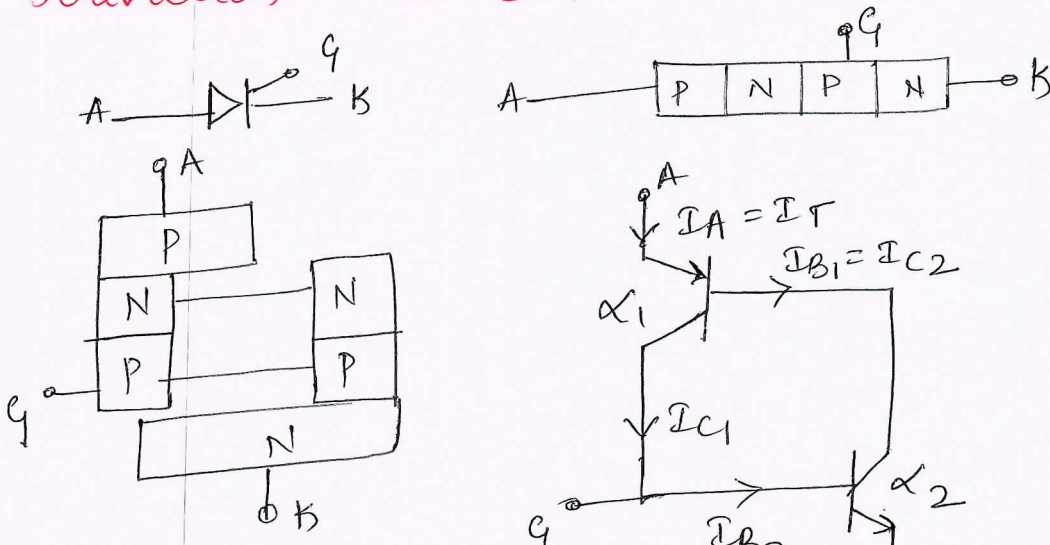 G
A K
G
A P N P N K
A
P
N N
P P
G
N
K
A
I_A = I_T
I_B1 = I_C2
α1
I_C1
α2
G